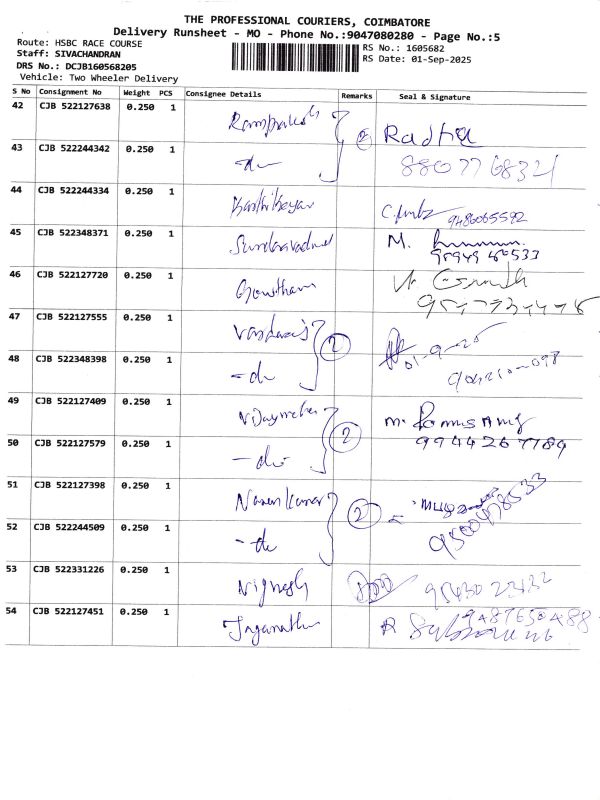 THE PROFESSIONAL COURIERS, COIMBATORE
Delivery Runsheet - MO - Phone No.:9047080280 - Page No.:5
Route: HSBC RACE COURSE
Staff: SIVACHANDRAN
DRS No.: DCJB160568205
Vehicle: Two Wheeler Delivery
RS No.: 1605682
RS Date: 01-Sep-2025
S No Consignment No Weight PCS Consignee Details Remarks Seal & Signature
42 CJB 522127638 0.250 1 Radha
43 CJB 522244342 0.250 1 - do 2
44 CJB 522244334 0.250 1 Karthikeyan 9486065592
45 CJB 522348371 0.250 1 M.
46 CJB 522127720 0.250 1 Gowtham
47 CJB 522127555 0.250 1 2 01-9-25
48 CJB 522348398 0.250 1 - do
49 CJB 522127409 0.250 1 M.
50 CJB 522127579 0.250 1 - do 2 9944267789
51 CJB 522127398 0.250 1 2
52 CJB 522244509 0.250 1 - do 9500478533
53 CJB 522331226 0.250 1 Vignesh
54 CJB 522127451 0.250 1 Jaganathan R